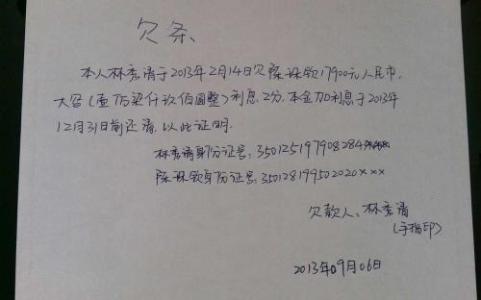 欠条
本人林秀清于2013年2月14日欠陈珠领17900元人民币,
大写(壹万柒仟玖佰圆整)利息2分.本金加利息于2013年
12月31日前还清.以此证明.
林秀清身份证号:350125197908284
陈珠领身份证号:350128199502020×××
欠款人:林秀清
(手指印)
2013年09月06日